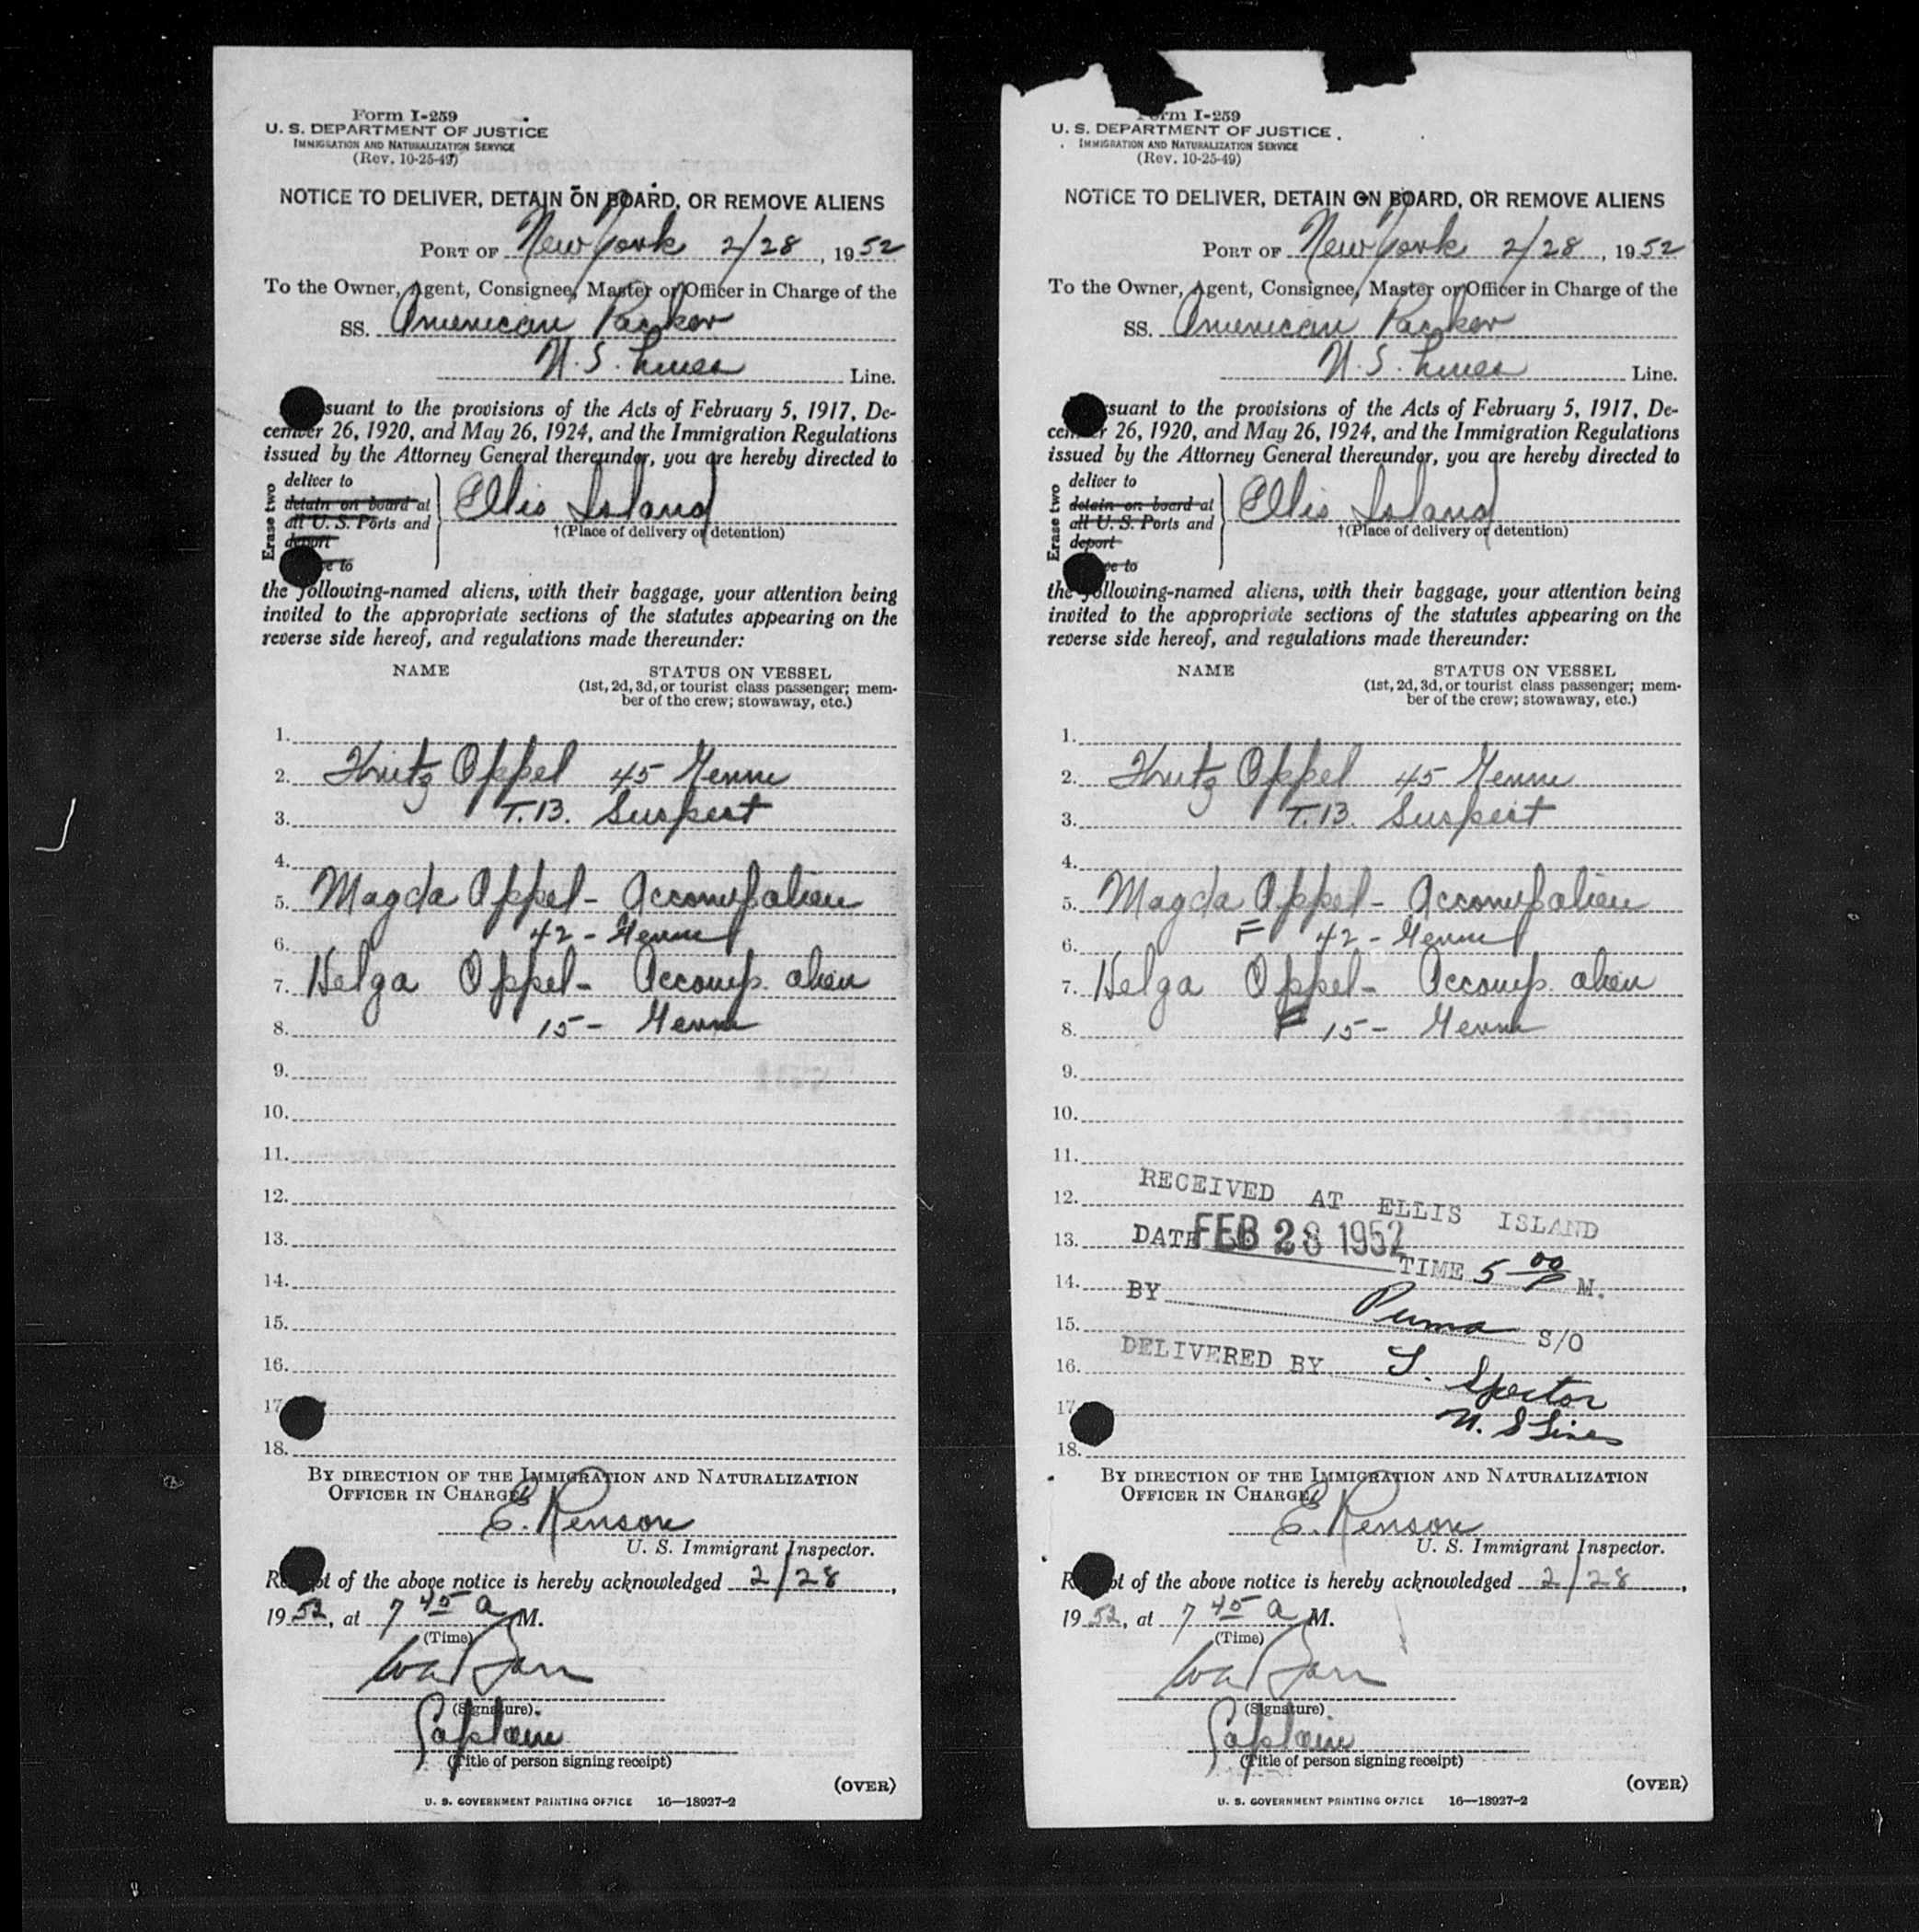 Form I-259
U. S. DEPARTMENT OF JUSTICE
IMMIGRATION AND NATURALIZATION SERVICE
(Rev. 10-25-49)
NOTICE TO DELIVER, DETAIN ON BOARD, OR REMOVE ALIENS
PORT OF New York 2/28, 1952
To the Owner, Agent, Consignee, Master or Officer in Charge of the
SS. American Packer
U. S. Lines Line.
suant to the provisions of the Acts of February 5, 1917, De-
cember 26, 1920, and May 26, 1924, and the Immigration Regulations
issued by the Attorney General thereunder, you are hereby directed to
Erase two
deliver to
detain on board at
all U. S. Ports and
deport
to
Ellis Island
†(Place of delivery or detention)
the following-named aliens, with their baggage, your attention being
invited to the appropriate sections of the statutes appearing on the
reverse side hereof, and regulations made thereunder:
NAME STATUS ON VESSEL
(1st, 2d, 3d, or tourist class passenger; mem-
ber of the crew; stowaway, etc.)
1.
2. Fritz Oppel 45 Germ
3. T.B. Suspect
4.
5. Magda Oppel - Accomp alien
6. 42 - Germ
7. Helga Oppel - Accomp. alien
8. 15 - Germ
9.
10.
11.
12.
13.
14.
15.
16.
17
18.
BY DIRECTION OF THE IMMIGRATION AND NATURALIZATION
OFFICER IN CHARGE
E. Renson
U. S. Immigrant Inspector.
Receipt of the above notice is hereby acknowledged 2/28,
1952, at 7 45 a M.
(Time)
(Signature).
Captain
(Title of person signing receipt)
(OVER)
U. S. GOVERNMENT PRINTING OFFICE 16—18927-2
Form I-259
U. S. DEPARTMENT OF JUSTICE
IMMIGRATION AND NATURALIZATION SERVICE
(Rev. 10-25-49)
NOTICE TO DELIVER, DETAIN ON BOARD, OR REMOVE ALIENS
PORT OF New York 2/28, 1952
To the Owner, Agent, Consignee, Master or Officer in Charge of the
SS. American Packer
U. S. Lines Line.
rsuant to the provisions of the Acts of February 5, 1917, De-
cember 26, 1920, and May 26, 1924, and the Immigration Regulations
issued by the Attorney General thereunder, you are hereby directed to
Erase two
deliver to
detain on board at
all U. S. Ports and
deport
to
Ellis Island
†(Place of delivery or detention)
the following-named aliens, with their baggage, your attention being
invited to the appropriate sections of the statutes appearing on the
reverse side hereof, and regulations made thereunder:
NAME STATUS ON VESSEL
(1st, 2d, 3d, or tourist class passenger; mem-
ber of the crew; stowaway, etc.)
1.
2. Fritz Oppel 45 Germ
3. T.B. Suspect
4.
5. Magda Oppel - Accomp alien
6. F 42 - Germ
7. Helga Oppel - Accomp. alien
8. F 15 - Germ
9.
10.
11.
12. RECEIVED AT ELLIS ISLAND
13. DATE FEB 28 1952
14. TIME 5 00 P M.
BY Puma
15. S/O
16. DELIVERED BY I. Spector
17 U. S Lines
18.
BY DIRECTION OF THE IMMIGRATION AND NATURALIZATION
OFFICER IN CHARGE
E. Renson
U. S. Immigrant Inspector.
Receipt of the above notice is hereby acknowledged 2/28,
1952, at 7 45 a M.
(Time)
(Signature)
Captain
(Title of person signing receipt)
(OVER)
U. S. GOVERNMENT PRINTING OFFICE 16—18927-2